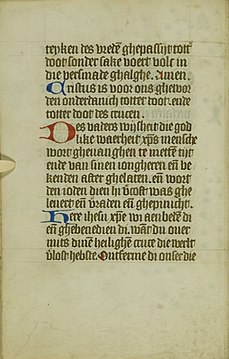 teyken des vrede ghepassijt tott
door sonder sake voert volk in
die persinade ghalghe. Amen.
Cristus is voor ons ghewor
den onderdanich totter doot. ende
totter doot des crucen
Des vaders wijsheit die god
like waerheit xpūs mensche
wort gheuanghen te metten tijt
ende van sinen iongheren eñ be
kenden after ghelaten. eñ wort
den ioden dien hi v̄coft was ghe
leuert eñ v̄raden eñ ghepinicht.
Here ihesu xp̄e wi aenbedē di
eñ ghebenedien di. wāt du ouer
mits dinē heilighē cruce die werlt
v̄lost hebste. Ontferme di onser die